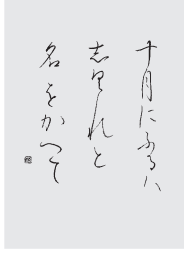 十月にふるハ
志ぐれと
名をかへて